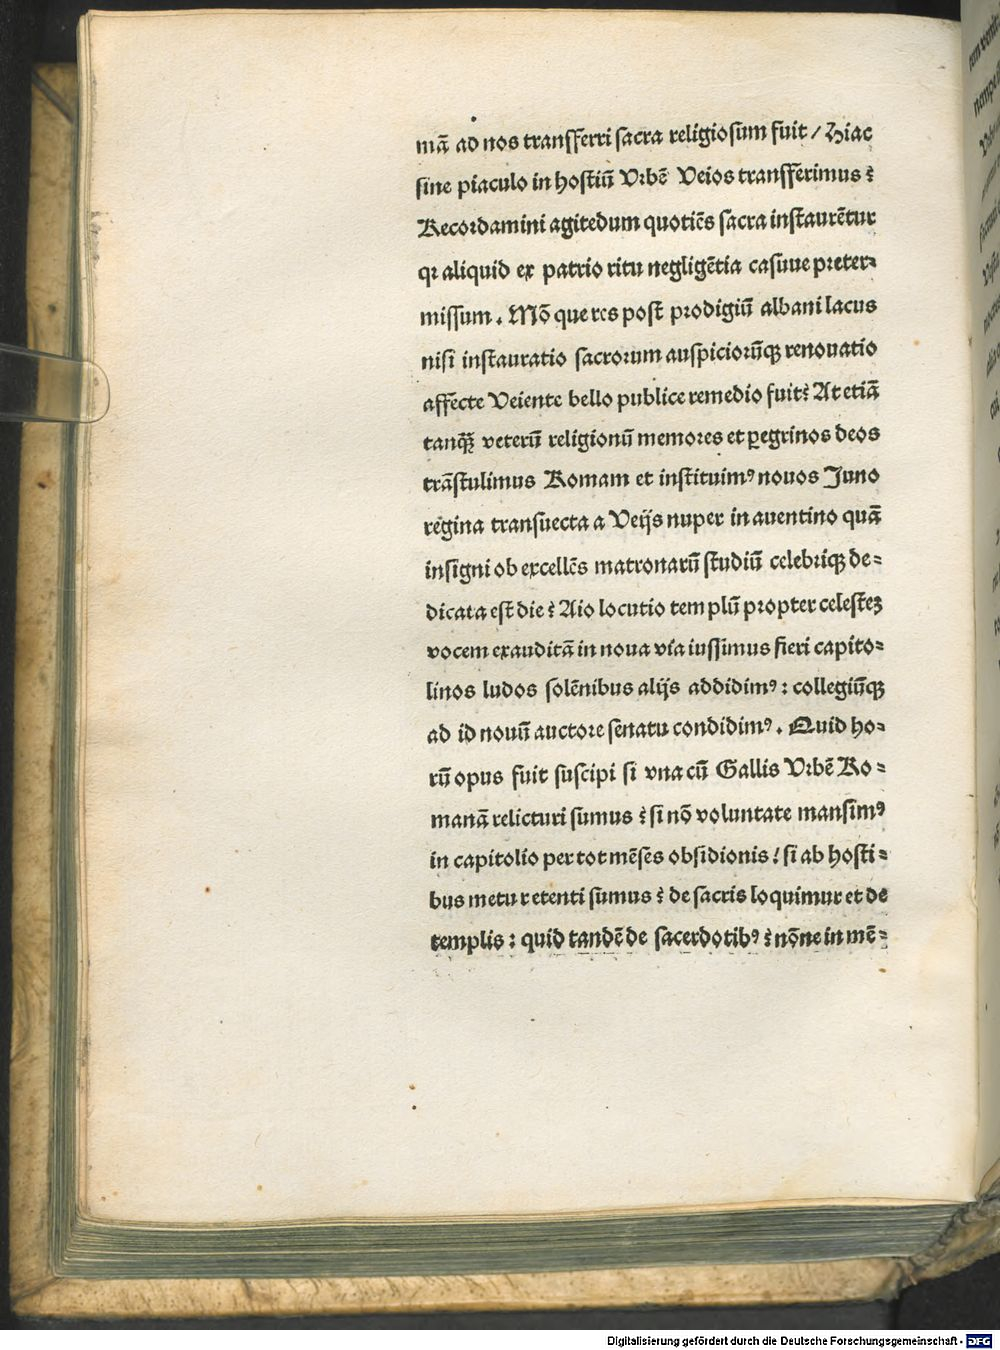 mā ad nos transferri sacra religiosum fuit / Hiac
sine piaculo in hostiū Vrbē Veios transferimus ?
Recordamini agitedum quotiēs sacra instaurētur
qꝛ aliquid ex patrio ritu negligētia casuue preter-
missum . Mō que res post prodigiū albani lacus
nisi instauratio sacrorum auspiciorūqꝫ renouatio
affecte Veiente bello publice remedio fuit? At etiā
tanqꝫ̄ veterū religionū memores et ꝑegrinos deos
trāstulimus Romam et instituimꝰ nouos Juno
regina transuecta a Veijs nuper in auentino quā
insigni ob excellēs matronarū studiū celebriqꝫ de-
dicata est die ? Aio locutio templū propter celesteꝫ
vocem exauditā in noua via iussimus fieri capito-
linos ludos solēnibus alijs addidimꝰ : collegiūqꝫ
ad id nouū auctore senatu condidimꝰ . Quid ho-
rū opus fuit suscipi si vna cū Gallis Vrbē Ro-
manā relicturi sumus ? si nō voluntate mansimꝰ
in capitolio per tot mēses obsidionis ! si ab hosti-
bus metu retenti sumus ? de sacris loquimur et de
templis : quid tandē de sacerdotibꝰ ? nōne in mē-
Digitalisierung gefördert durch die Deutsche Forschungsgemeinschaft - DFG